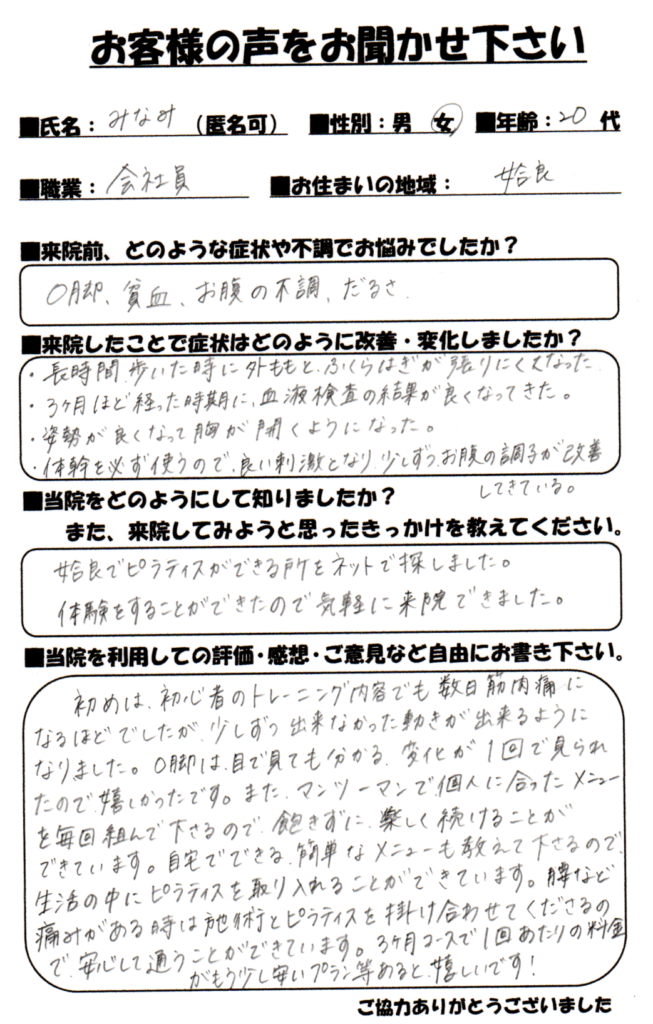 お客様の声をお聞かせ下さい
■氏名：みなみ（匿名可） ■性別：男 女 ■年齢：20 代
■職業：会社員 ■お住まいの地域：姶良
■来院前、どのような症状や不調でお悩みでしたか？
O脚、貧血、お腹の不調、だるさ
■来院したことで症状はどのように改善・変化しましたか？
・長時間、歩いた時に外ももと、ふくらはぎが張りにくくなった
・3ヶ月ほど経った時期に、血液検査の結果が良くなってきた。
・姿勢が良くなって胸が開くようになった。
・体幹を必ず使うので、良い刺激となり、少しずつ、お腹の調子が改善
してきている。
■当院をどのようにして知りましたか？
また、来院してみようと思ったきっかけを教えてください。
姶良でピラティスができる所をネットで探しました。
体験をすることができたので気軽に来院できました。
■当院を利用しての評価・感想・ご意見など自由にお書き下さい。
初めは、初心者のトレーニング内容でも数日筋肉痛に
なるほどでしたが、少しずつ出来なかった動きが出来るように
なりました。O脚は、目で見ても分かる、変化が1回で見られ
たので、嬉しかったです。また、マンツーマンで個人に合ったメニュー
を毎回組んで下さるので、飽きずに、楽しく続けることが
できています。自宅でできる、簡単なメニューも教えて下さるので、
生活の中にピラティスを取り入れることができています。腰など
痛みがある時は施術とピラティスを掛け合わせてくださるの
で、安心して通うことができています。3ヶ月コースで1回あたりの料金
がもう少し安いプラン等あると、嬉しいです！
ご協力ありがとうございました